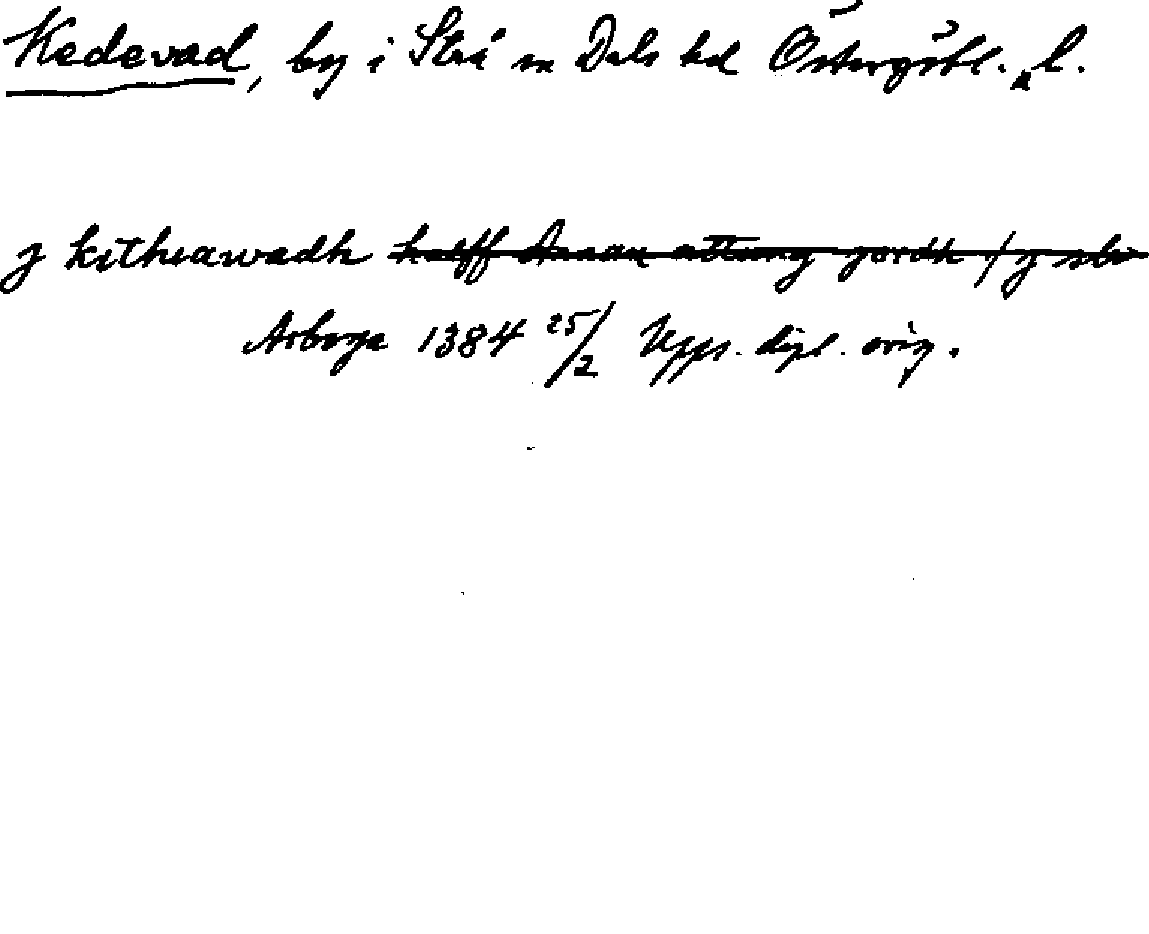 Kedevad, by i Strå sn Dals hd Östergötl. l.
j kitheawadh halff annan attung jordh / j slö
Arboga 1384 25/2 Upps. dipl. orig.